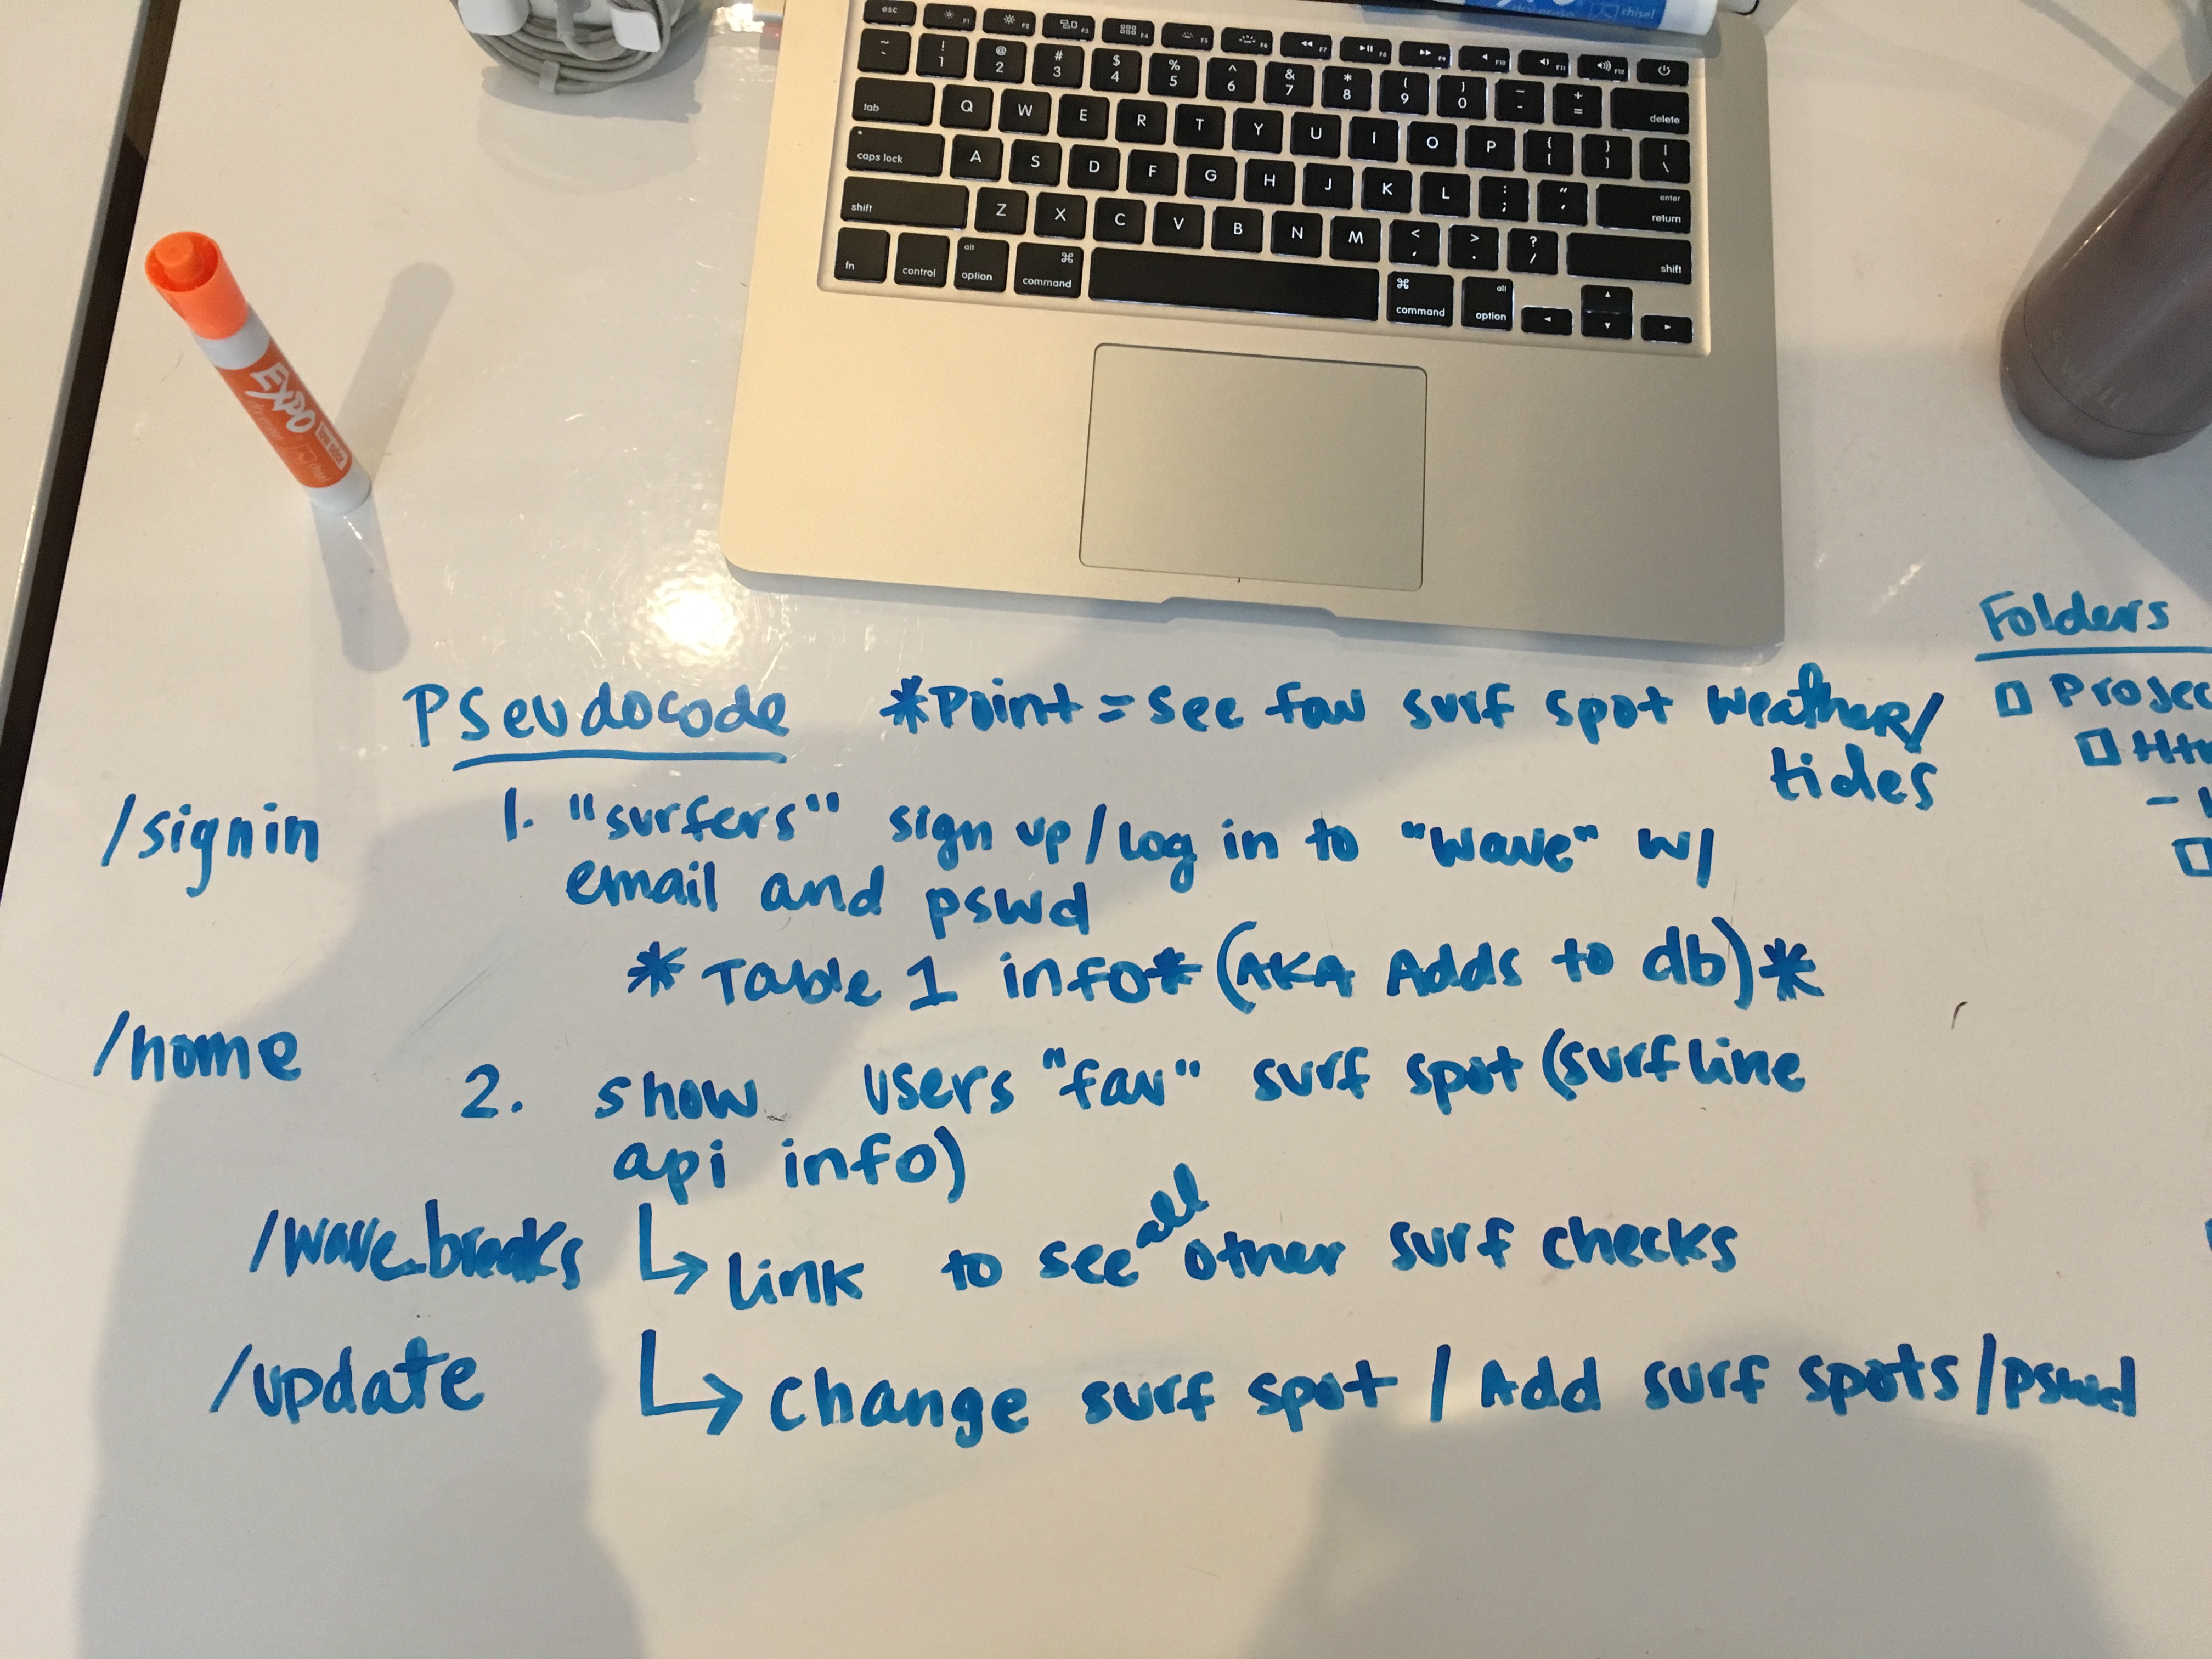 esc F1 F2 F3 F4 F5 F6 F7 F8 F9 F10 F11 F12
~ ! 1 @ 2 # 3 $ 4 % 5 ^ 6 & 7 * 8 ( 9 ) 0 _ - + = delete
tab Q W E R T Y U I O P { [ } ] | \
caps lock A S D F G H J K L : ; " ' enter return
shift Z X C V B N M < , > . ? / shift
fn control alt option ⌘ command ⌘ command alt option
chisel
EXPO
low odor
chisel
swell
Pseudocode *Point = see fav surf spot weather/
tides
/signin 1. "surfers" sign up/log in to "wave" w/
email and pswd
* Table 1 info* (AKA Adds to db)*
/home
2. show users "fav" surf spot (surfline
api info)
/wave_breaks ↳ link to see all other surf checks
/update ↳ change surf spot / Add surf spots/pswd
Folders
□ Projec
□ Htm